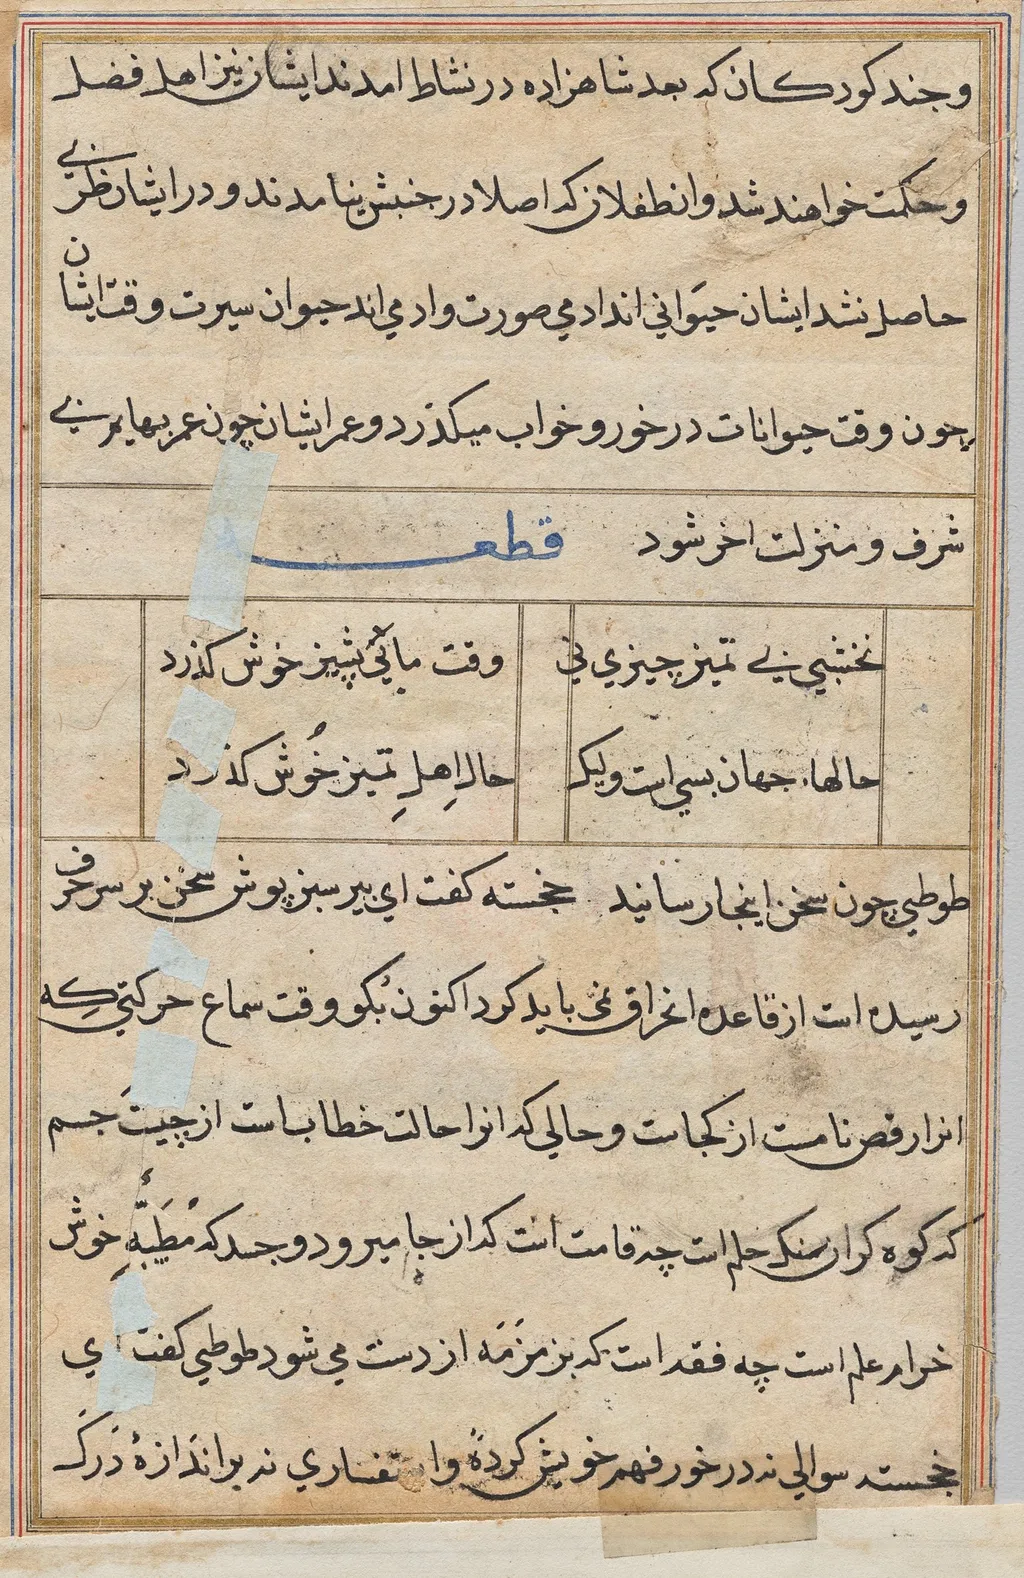 و جند کودکان که بعد شاهزاده در نشاط امدند ایشان نیز اهل فضل
و حکمت خواهند شد و انطفلان که اصلا در جنبش نیامدند و در ایشان ظربی
حاصل نشد ایشان حیوانی اند ادمی صورت و ادمی اند حیوان سیرت وقت ایشان
چون وقت حیوانات در خور و خواب میکذرد و عمر ایشان چون عمر بهایم بی
شرف و منزلت اخر شود قطعه
نخشبی بی تمیز چیزی نی وقت مائی پشیز خوش کذرد
حالهاء جهان بسی است ولیک حال اهل تمیز خوش کذرد
طوطی چون سخن اینجا رسانید خجسته کفت ای پیر سبز پوش سخن بر سر حرف
رسیده است از قاعده انحراق نمی باید کرد اکنون بکو وقت سماع حرکتی که
انرا رقص نامست از کجاست و حالی که انرا حالت خطاب است از چیست جسم
که کوه کران سنک حلم است چه قامت است که از جا میرود و جسد که مطیه خوش
خرام علم است چه فقد است که بزمزمه از دست می شود طوطی کفت ای
خجسته سوالی نه در خور فهم خویش کرده و استفساری نه بر اندازه درک